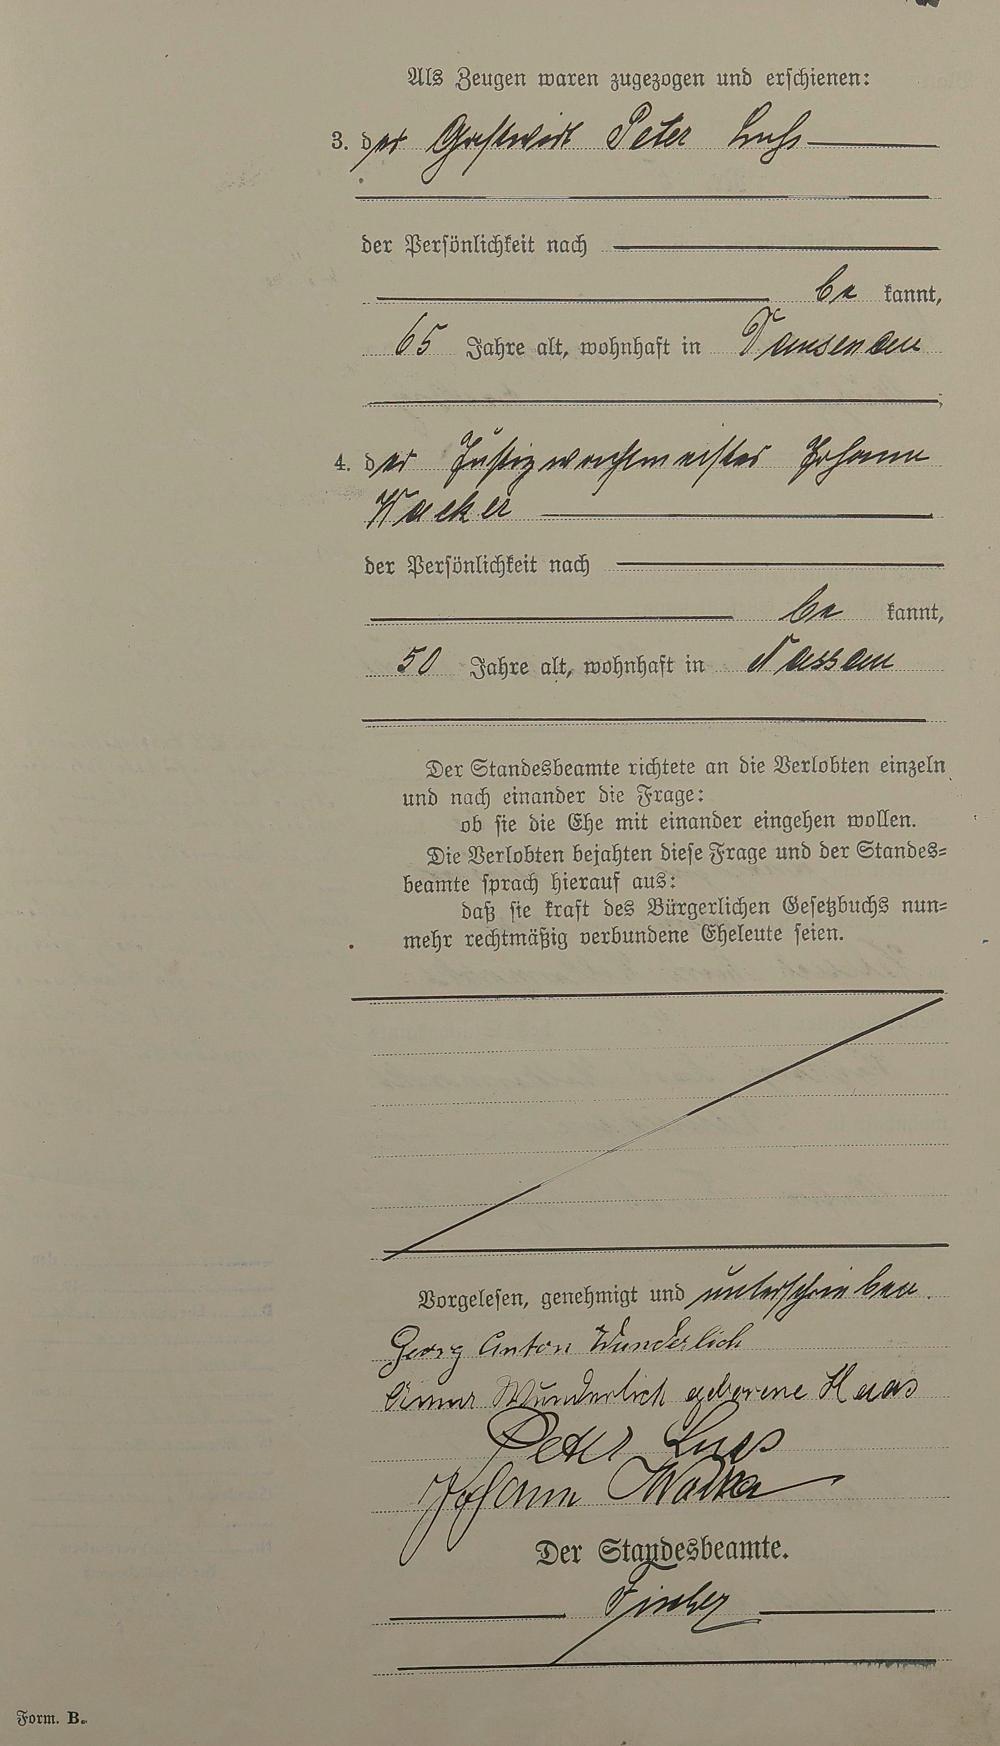 Als Zeugen waren zugezogen und erschienen:
3. der Gastwirt Peter
der Persönlichkeit nach
be kannt,
65 Jahre alt, wohnhaft in Dausenau
4. der Justizwachtmeister Johann
Wacker
der Persönlichkeit nach
be kannt,
50 Jahre alt, wohnhaft in Nassau
Der Standesbeamte richtete an die Verlobten einzeln
und nach einander die Frage:
ob sie die Ehe mit einander eingehen wollen.
Die Verlobten bejahten diese Frage und der Standes=
beamte sprach hierauf aus:
daß sie kraft des Bürgerlichen Gesetzbuchs nun=
mehr rechtmäßig verbundene Eheleute seien.
Vorgelesen, genehmigt und unterschrieben.
Georg Anton Wunderlich
Anna Wunderlich geborene Haas
Peter
Johann
Der Standesbeamte.
Fischer
Form. B.